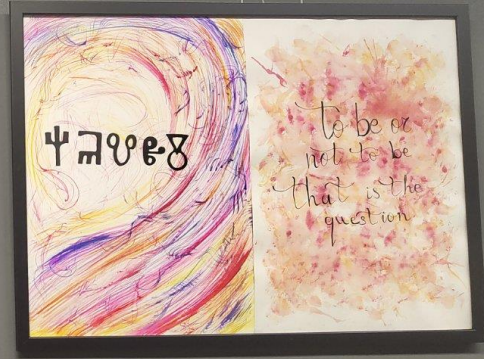 to be or
not to be
that is the
question